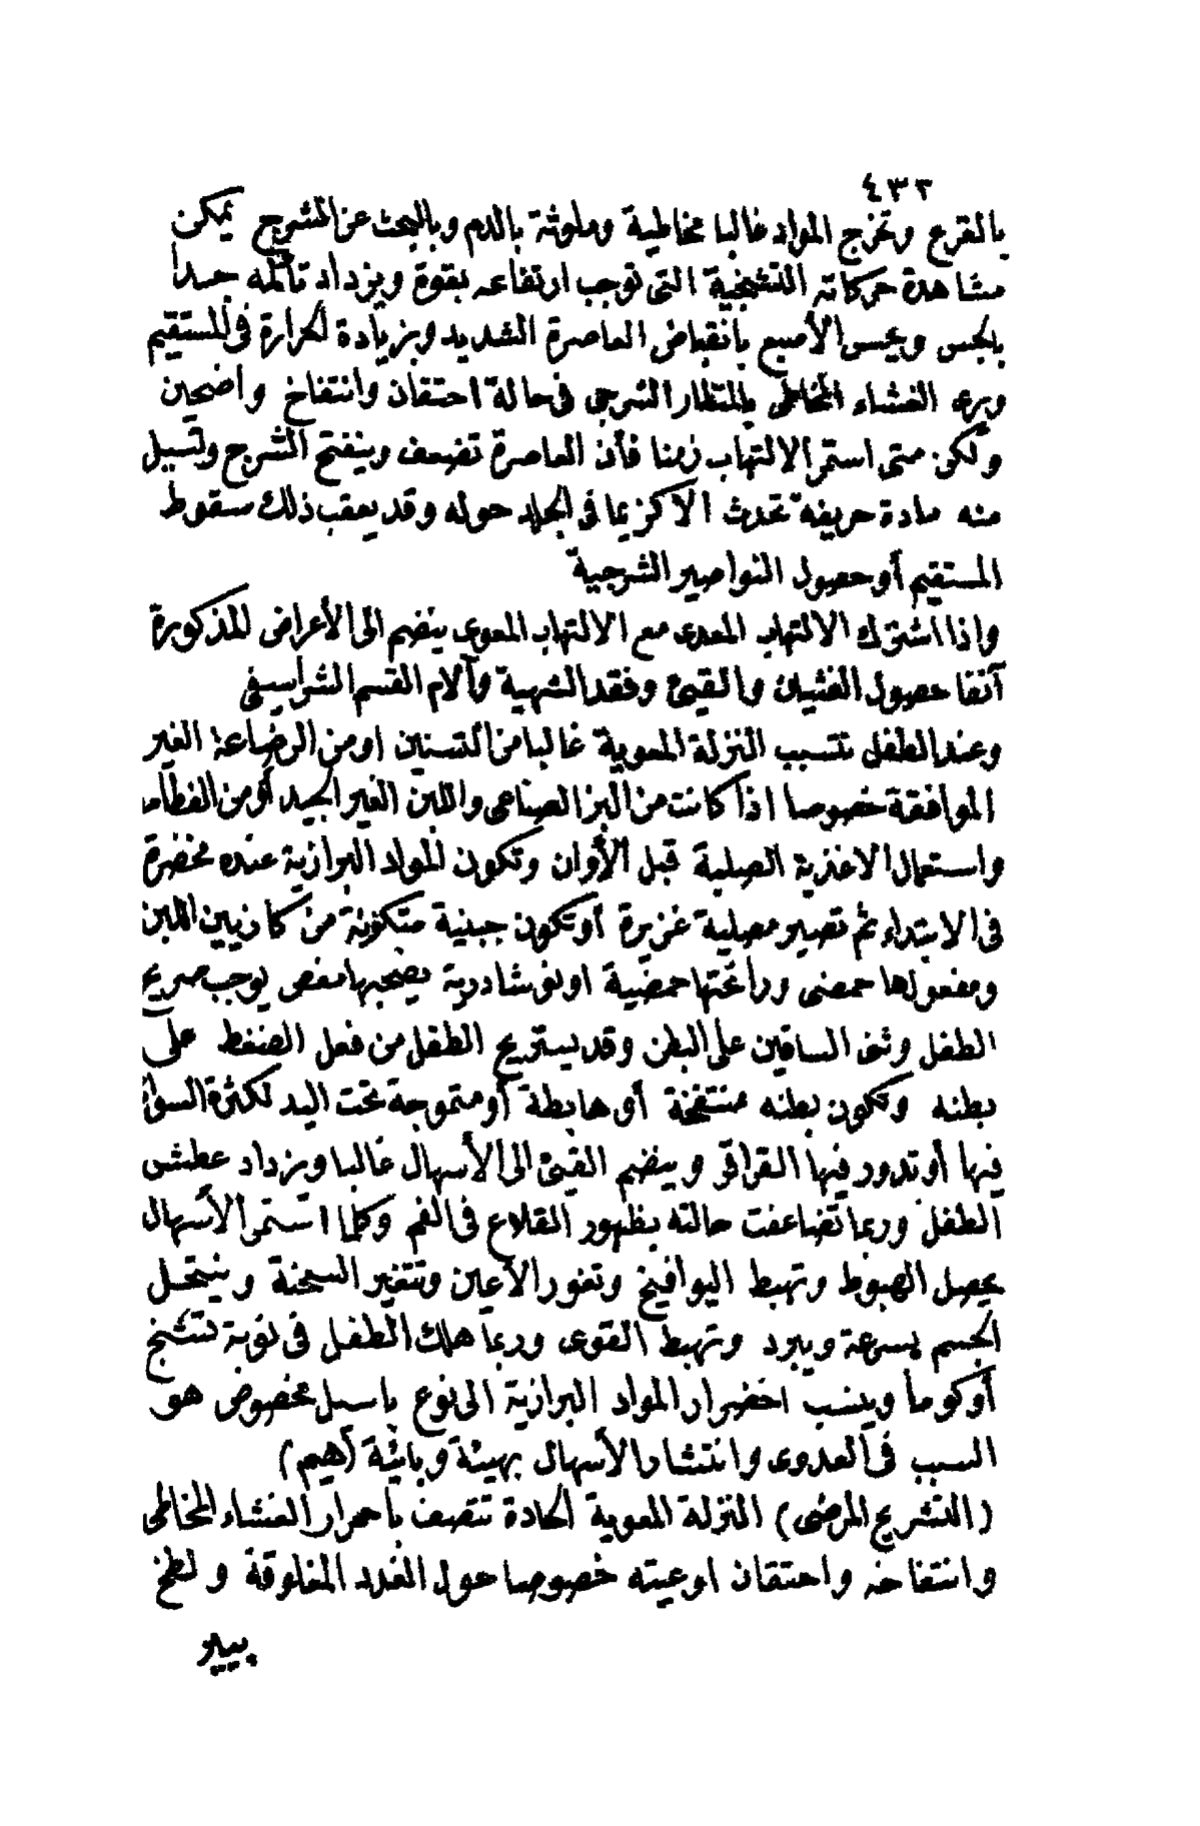 ٤٣٢
بالقرع وتخرج المواد غالبا مخاطية وملوثة بالدم وبالبحث عن الشرج يمكن
مشاهدة حركاته التشنجية التى توجب ارتفاعه بقوة ويزداد تألمه جدا
بالجس ويحس الأصبع بانقباض العاصرة الشديد وبزيادة الحرارة فى المستقيم
ويرى الغشاء المخاطى بالمنظار الشرجى فى حالة احتقان وانتفاخ واضحين
ولكن متى استمر الالتهاب زمنا فأن العاصرة تضعف وينفتح الشرج وتسيل
منه مادة حريفة تحدث الاكزيما فى الجلد حوله وقد يعقب ذلك سقوط
المستقيم أو حصول النواصير الشرجية
واذا اشترك الالتهاب المعدى مع الالتهاب المعوى ينضم الى الأعراض المذكورة
آنفا حصول الغثيان والقيئ وفقد الشهية وآلام القسم الشراسيفى
وعند الطفل تتسبب النزلة المعوية غالبا من التسنين او من الرضاعة الغير
الموافقة خصوصا اذا كانت من البز الصناعى واللبن الغير الجيد أو من الفطام
واستعمال الاغذية الصلبة قبل الأوان وتكون المواد البرازية عنده مخضرة
فى الابتداء ثم تصير مصلية غزيرة أو تكون جبنية متكونة من كازيين اللبن
ومفعولها حمضى ورائحتها حمضية او نوشادرية يصحبها مغص يوجب صريخ
الطفل وثنى الساقين على البطن وقد يستريح الطفل من فعل الضغط على
بطنه وتكون بطنه منتفخة أو هابطة أو متموجة تحت اليد لكثرة السوائل
فيها أو تدور فيها القراقر وينضم القيئ الى الأسهال غالبا ويزداد عطش
الطفل وربما تضاعفت حالته بظهور القلاع فى الفم وكلما استمر الأسهال
يحصل الهبوط وتهبط اليوافيخ وتغور الأعين وتتغير السحنة وينتحل
الجسم بسرعة ويبرد وتهبط القوى وربما هلك الطفل فى نوبة تشنج
أو كوما وينسب اخضرار المواد البرازية الى نوع باسيل مخصوص هو
السبب فى العدوى وانتشار الأسهال بهيئة وبائية (هيم)
(التشريح المرضى) النزلة المعوية الحادة تتصف باحمرار الغشاء المخاطى
وانتفاخه واحتقان اوعيته خصوصا حول الغدد المغلوقة ولطخ